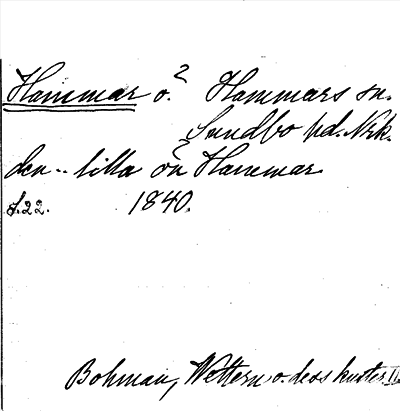 Hammar ö.? Hammars sn.
Sundbo hd. Nrk.
den.. lilla ön Hammar
s.22. 1840.
Bohman, Wettern o. dess kuster II